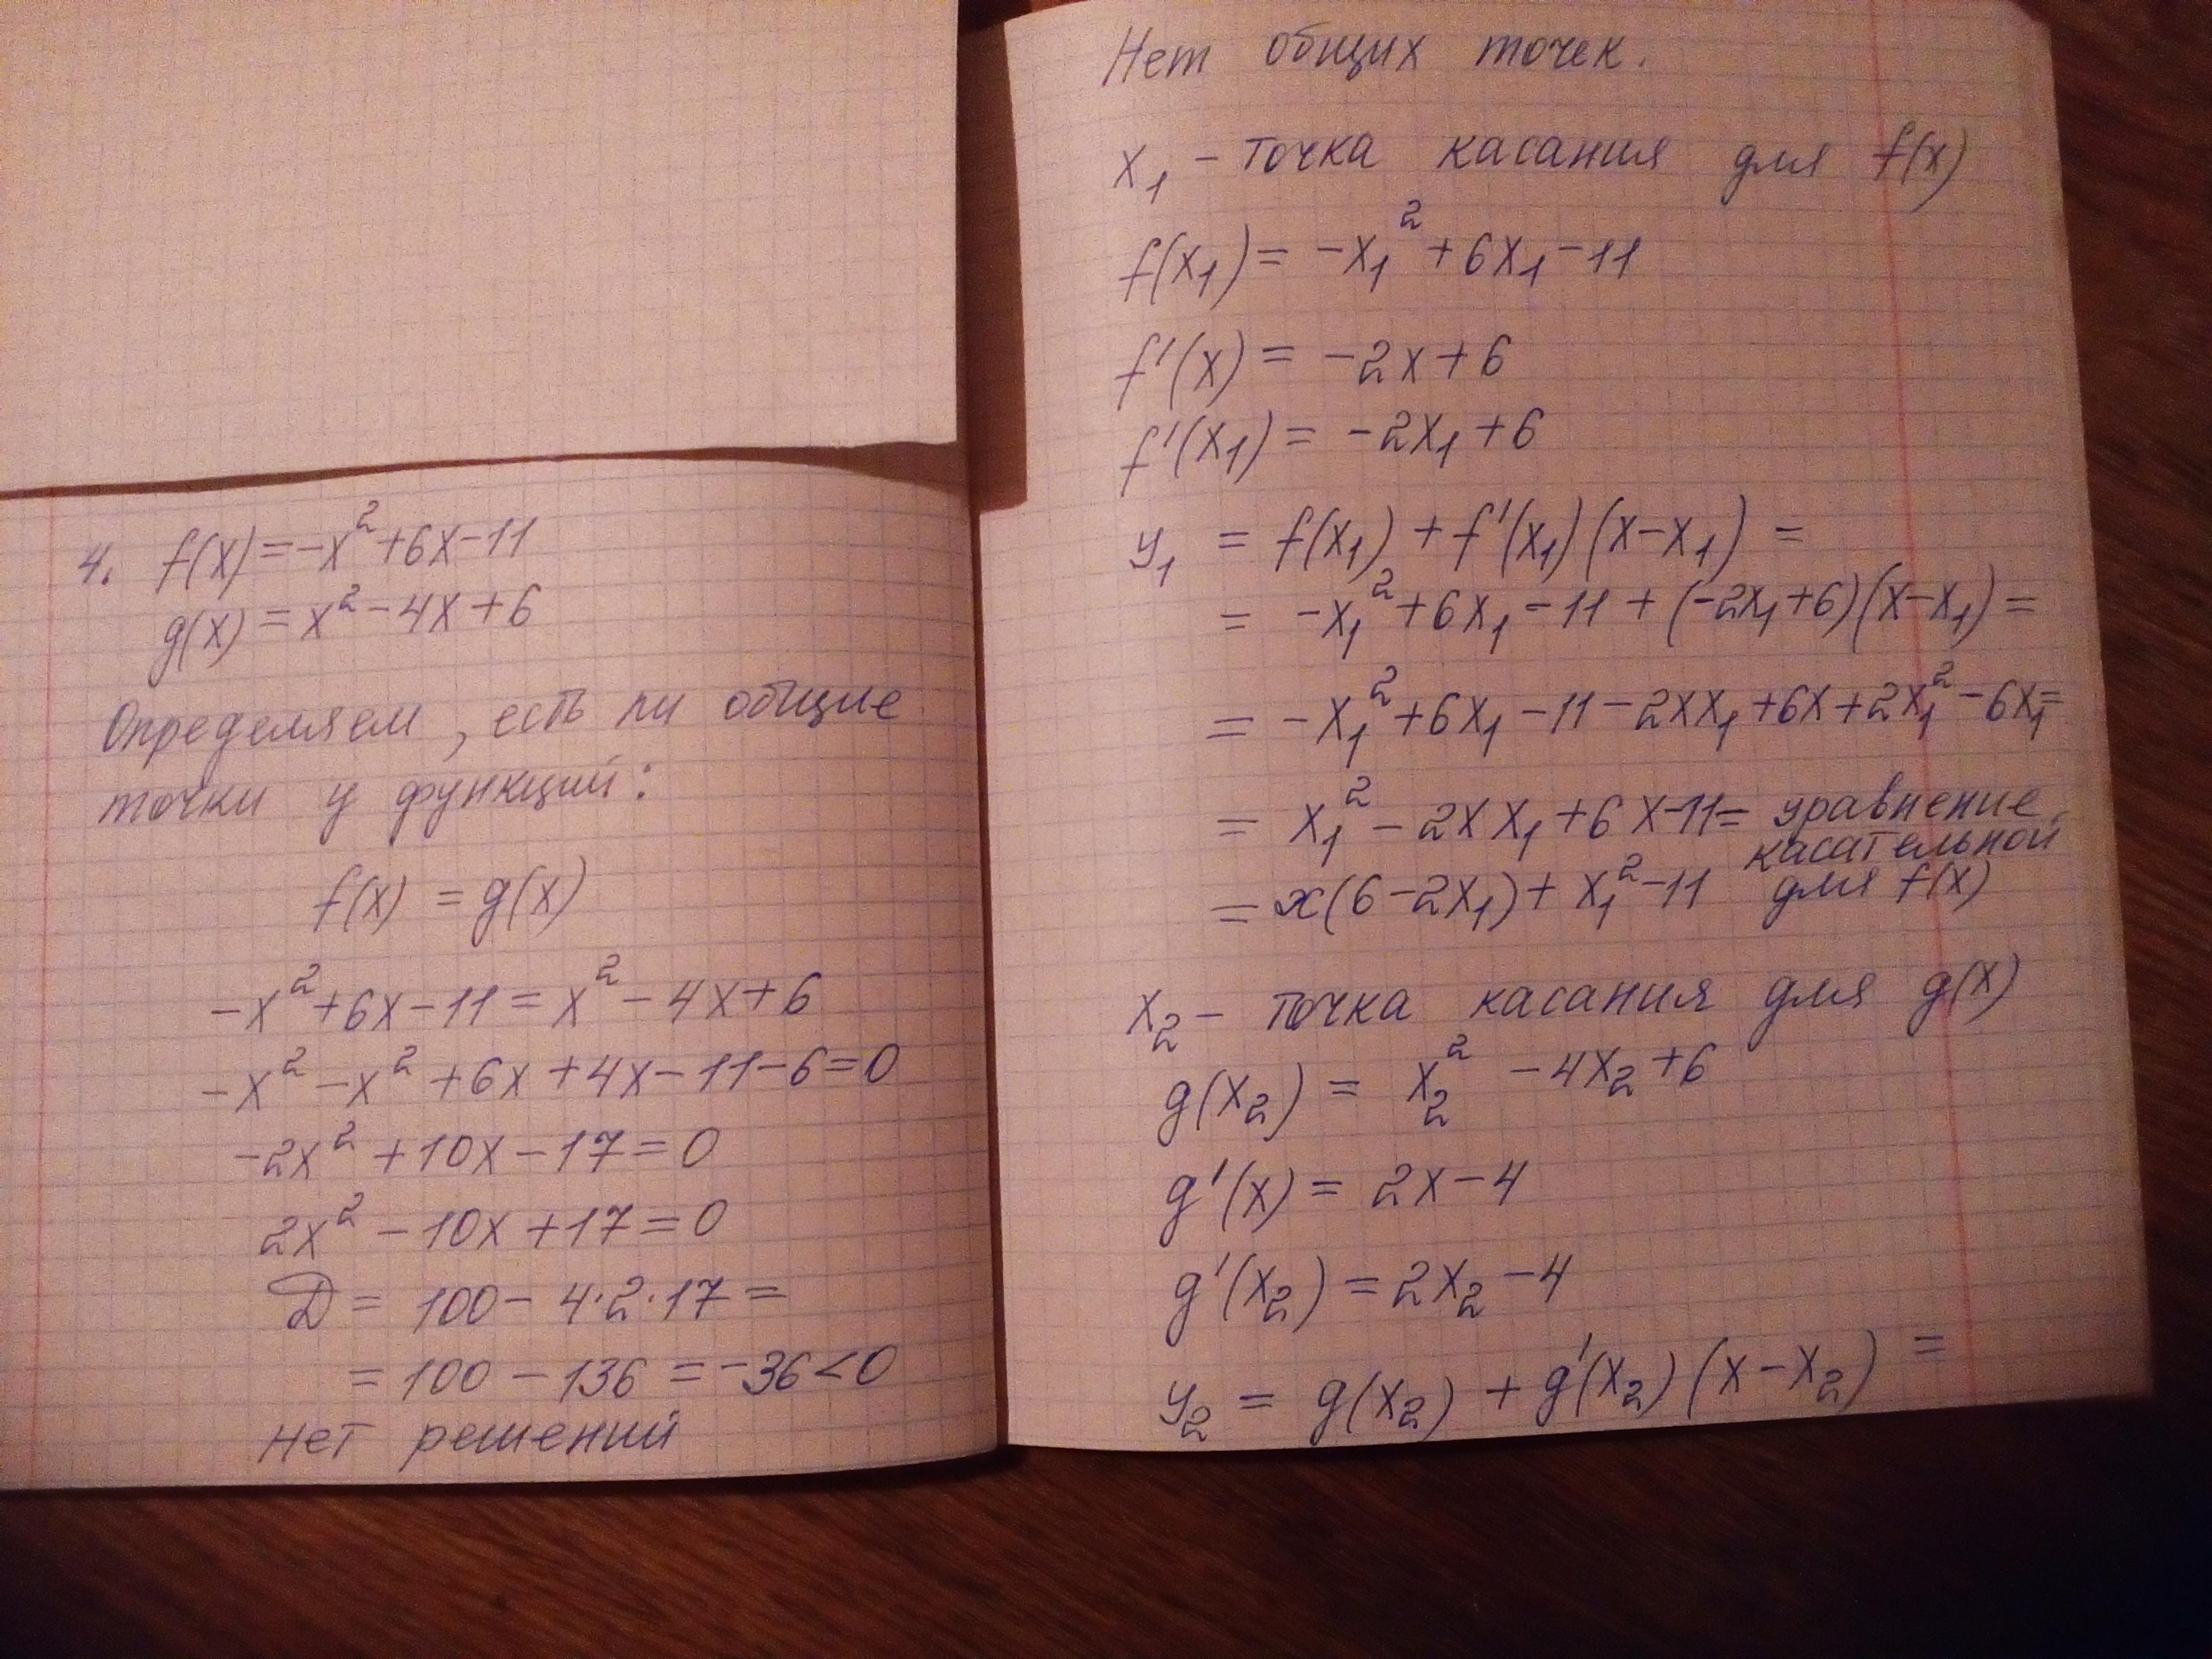 4. f(x) = -x² + 6x - 11
g(x) = x² - 4x + 6
Определяем, есть ли общие
точки у функций:
f(x) = g(x)
-x² + 6x - 11 = x² - 4x + 6
-x² - x² + 6x + 4x - 11 - 6 = 0
-2x² + 10x - 17 = 0
2x² - 10x + 17 = 0
D = 100 - 4·2·17 =
= 100 - 136 = -36 < 0
Нет решений
Нет общих точек.
x₁ - точка касания для f(x)
f(x₁) = -x₁² + 6x₁ - 11
f'(x) = -2x + 6
f'(x₁) = -2x₁ + 6
y₁ = f(x₁) + f'(x₁)(x - x₁) =
= -x₁² + 6x₁ - 11 + (-2x₁ + 6)(x - x₁) =
= -x₁² + 6x₁ - 11 - 2xx₁ + 6x + 2x₁² - 6x₁ =
= x₁² - 2xx₁ + 6x - 11 = уравнение
касательной
= x(6 - 2x₁) + x₁² - 11 для f(x)
x₂ - точка касания для g(x)
g(x₂) = x₂² - 4x₂ + 6
g'(x) = 2x - 4
g'(x₂) = 2x₂ - 4
y₂ = g(x₂) + g'(x₂)(x - x₂) =